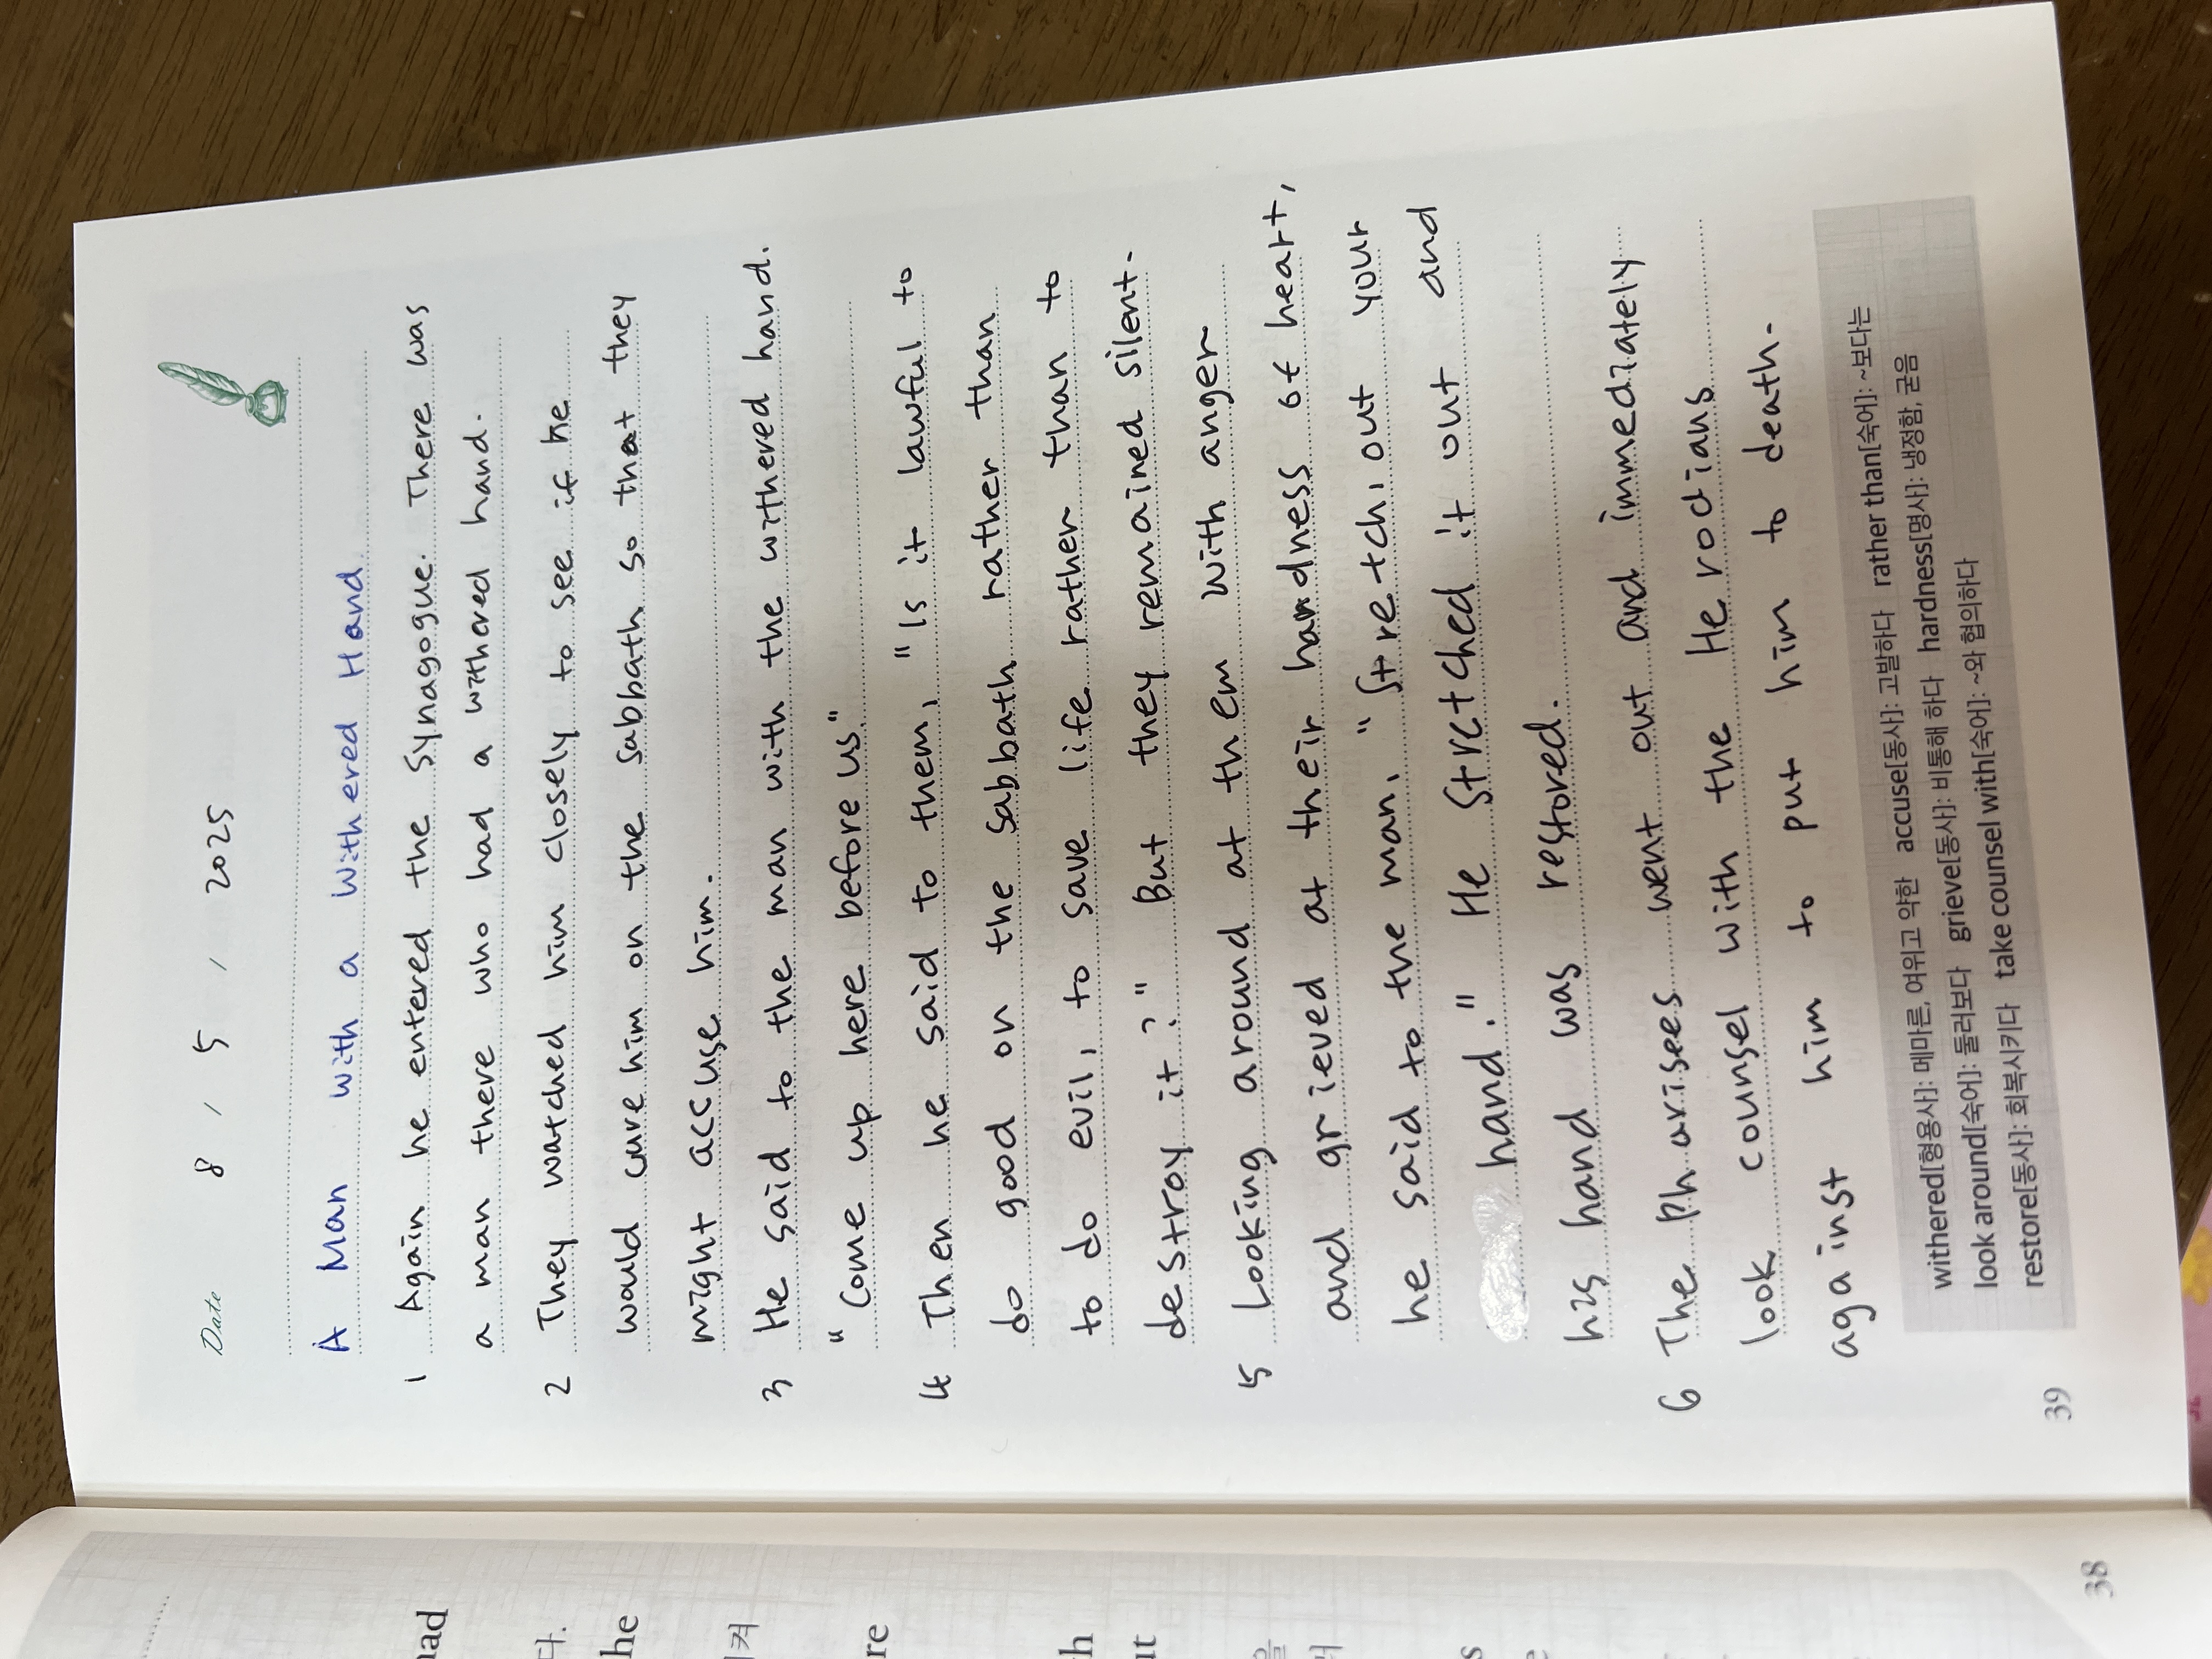 Date 8 / 5 / 2025
A Man with a withered Hand.
1 Again he entered the synagogue. There was
a man there who had a withered hand.
2 They watched him closely to see if he
would cure him on the sabbath so that they
might accuse him.
3 He said to the man with the withered hand.
"Come up here before us."
4 Then he said to them, "Is it lawful to
do good on the sabbath rather than
to do evil, to save life rather than to
destroy it?" But they remained silent.
5 Looking around at them with anger
and grieved at their hardness of heart,
he said to the man, "Stretch out your
hand." He stretched it out and
his hand was restored.
6 The Pharisees went out and immediately
look counsel with the Herodians
against him to put him to death.
withered[형용사]: 메마른, 여위고 약한 accuse[동사]: 고발하다 rather than[숙어]: ~보다는
look around[숙어]: 둘러보다 grieve[동사]: 비통해 하다 hardness[명사]: 냉정함, 굳음
restore[동사]: 회복시키다 take counsel with[숙어]: ~와 협의하다
39
nad
다.
he
켜
re
h
ut
을
38